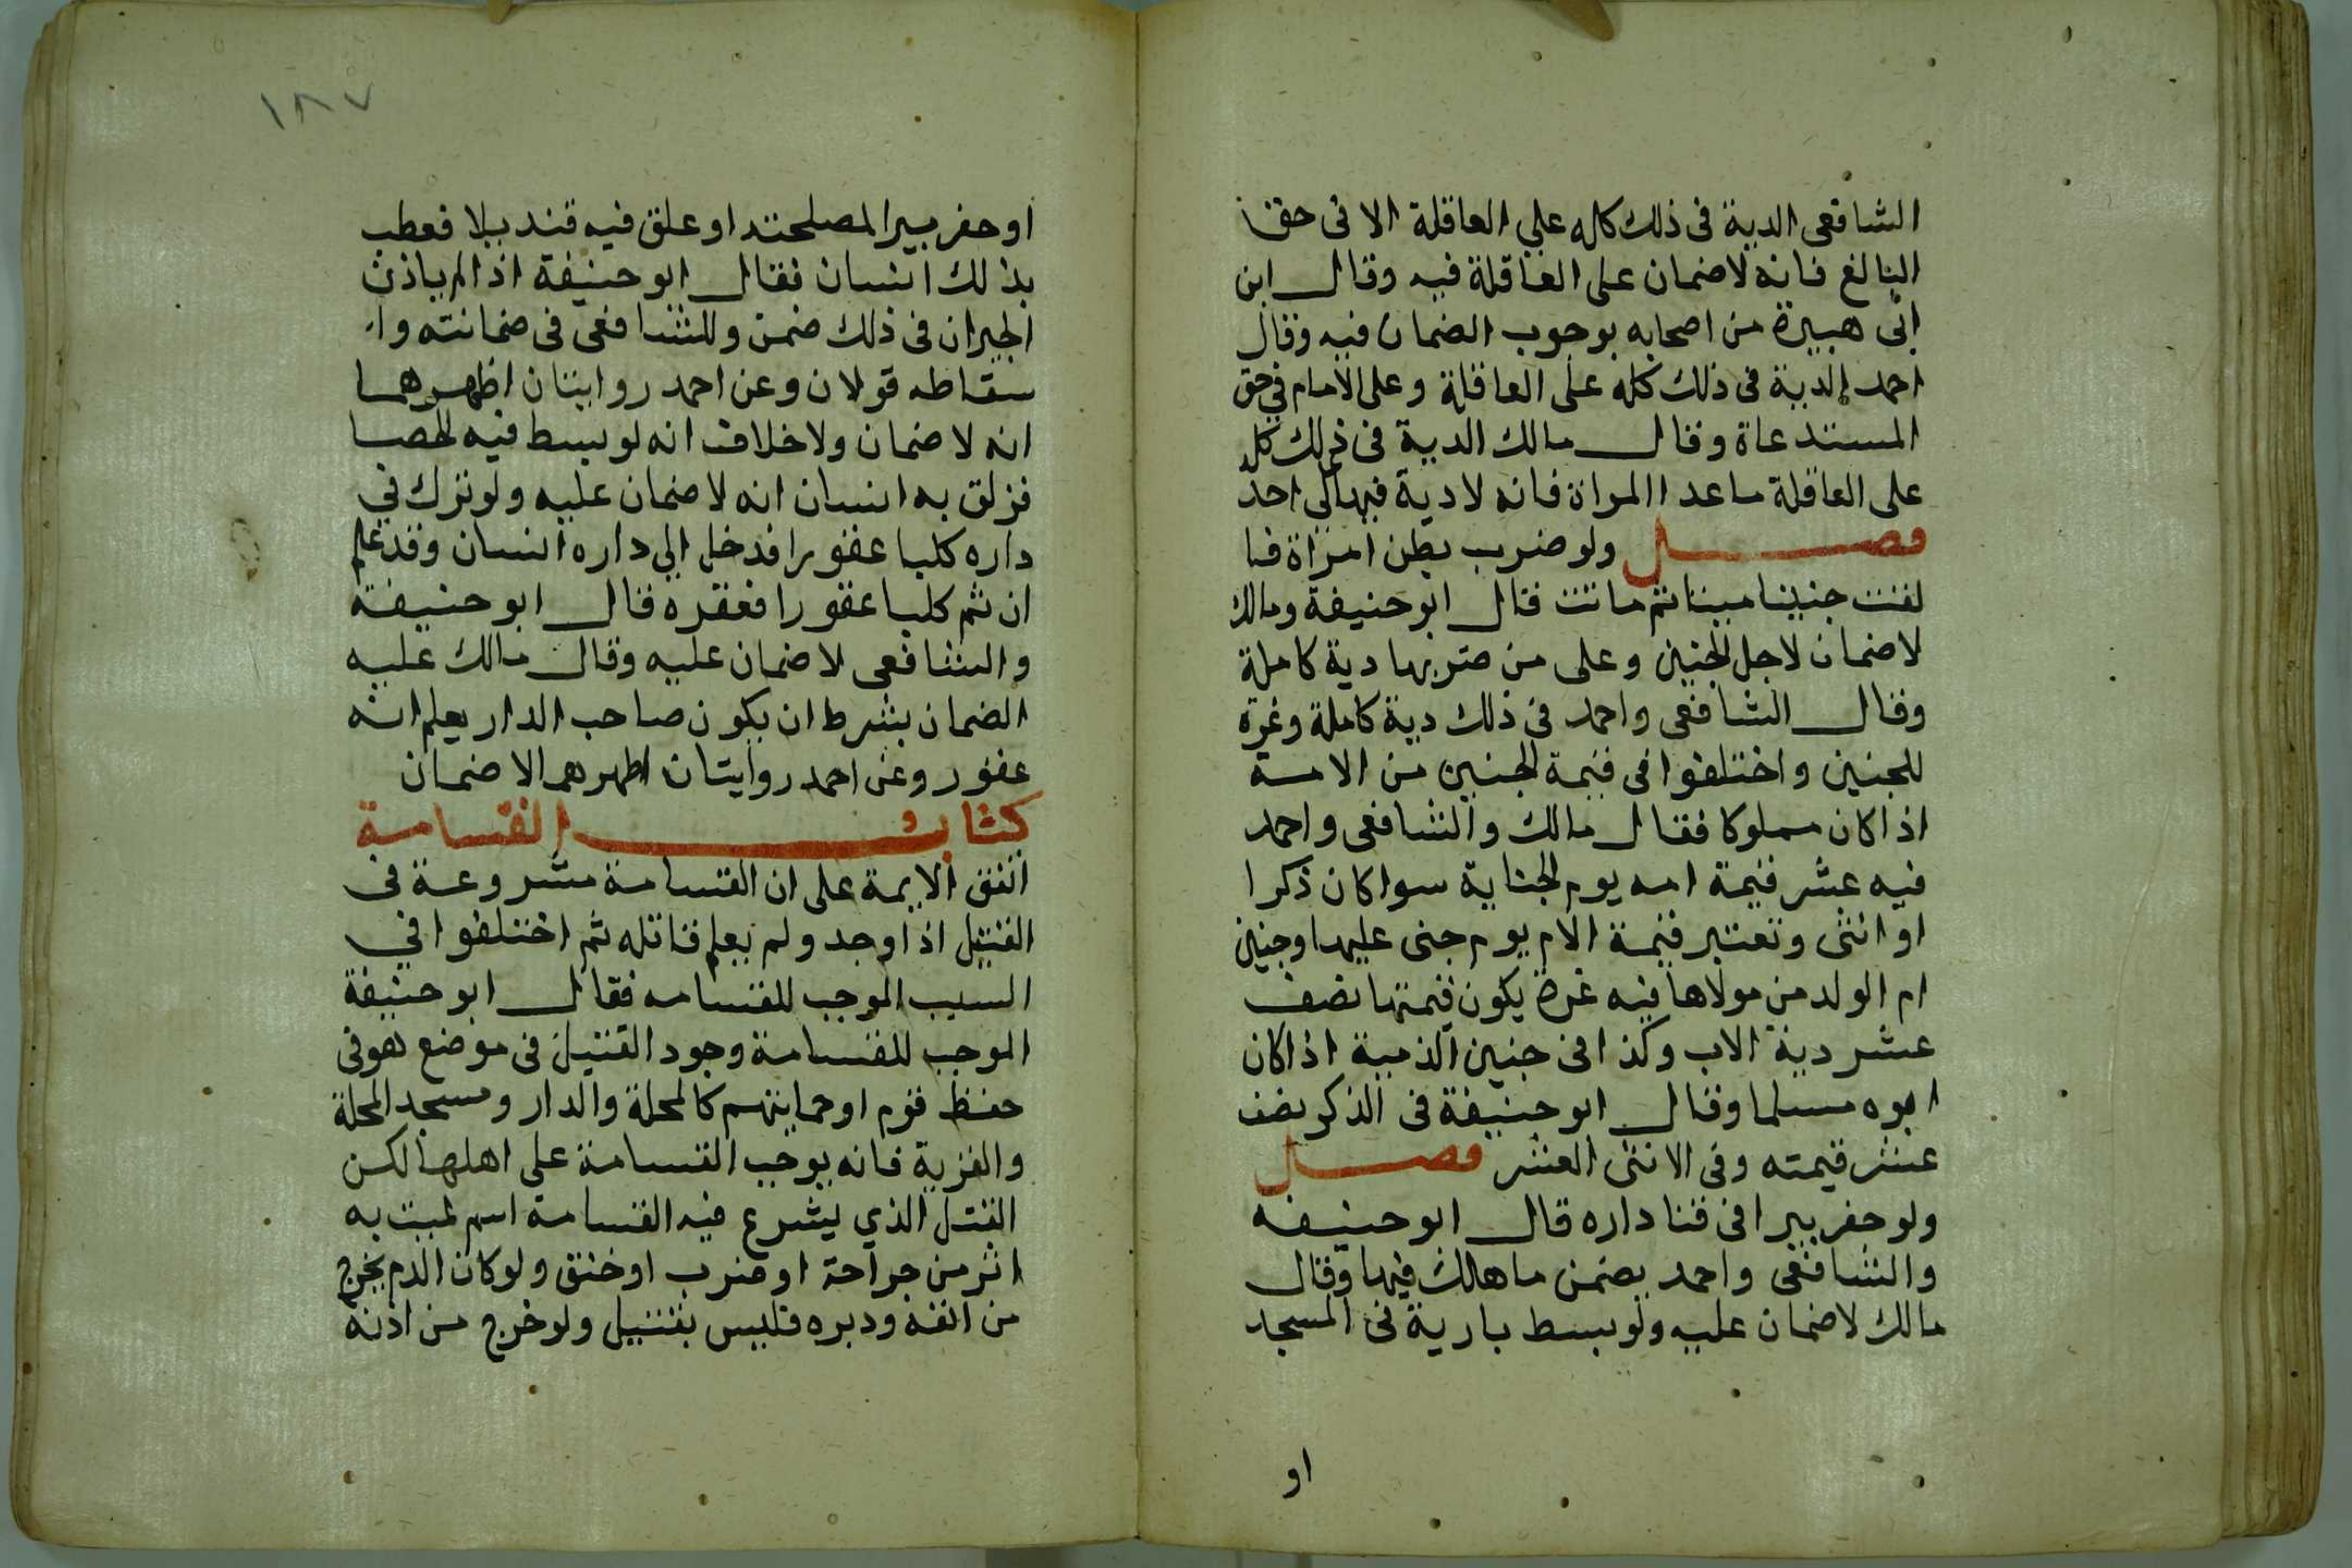 الشافعى الدية فى ذلك كله على العاقلة الا فى حق
البالغ فانه لا ضمان على العاقلة فيه وقال ابن
ابى هبيرة من اصحابه بوجوب الضمان فيه وقال
احمد الدية فى ذلك كله على العاقلة وعلى الامام في حق
المستدعاة وقال مالك الدية فى ذلك كله
على العاقلة ماعدا المراة فانه لا دية فيها على احد
فصل ولو ضرب بطن امراة فا
لقت جنينا ميتا ثم ماتت قال ابو حنيفة ومالك
لا ضمان لاجل الجنين وعلى من ضربها دية كاملة
وقال الشافعى واحمد فى ذلك دية كاملة وغرة
للجنين واختلفوا فى قيمة الجنين من الامة
اذا كان مملوكا فقال مالك والشافعى واحمد
فيه عشر قيمة امه يوم الجناية سوا كان ذكرا
او انثى وتعتبر قيمة الام يوم جنى عليها وجنين
ام الولد من مولاها فيه غرة يكون قيمتها نصف
عشر دية الاب وكذا فى جنين الذمية اذا كان
ابوه مسلما وقال ابو حنيفة فى الذكر نصف
عشر قيمته وفى الانثى العشر فصل
ولو حفر بيرا فى فنا داره قال ابو حنيفه
والشافعى واحمد يضمن ما هلك فيها وقال
مالك لا ضمان عليه ولو بسط بارية فى المسجد
او
١٨٧
او حفر بيرا لمصلحته او علق فيه قنديلا فعطب
بذلك انسان فقال ابو حنيفة اذا لم ياذن
الجيران فى ذلك ضمن وللشافعى فى ضمانته وا
سقاطه قولان وعن احمد روايتان اظهرهما
انه لا ضمان ولا خلاف انه لو بسط فيه الحصا
فزلق به انسان انه لا ضمان عليه ولو ترك في
داره كلبا عقورا فدخل الي داره انسان وقد علم
ان ثم كلبا عقورا فعقره قال ابو حنيفة
والشافعى لا ضمان عليه وقال مالك عليه
الضمان بشرط ان يكون صاحب الدار يعلم انه
عقور وعن احمد روايتان اظهرهما لا ضمان
كتاب القسامة
اتفق الايمة على ان القسامة مشروعة فى
القتيل اذا وجد ولم يعلم قاتله ثم اختلفوا في
السبب الموجب للقسامه فقال ابو حنيفة
الموجب للقسامة وجود القتيل فى موضع هو فى
حفظ قوم او حمايتهم كالمحلة والدار ومسجد المحلة
والقرية فانه يوجب القسامة على اهلها لكن
القتيل الذي يشرع فيه القسامة اسم لميت به
اثر من جراحة او ضرب او خنق ولو كان الدم يخرج
من انفه ودبره فليس بقتيل ولو خرج من اذنه